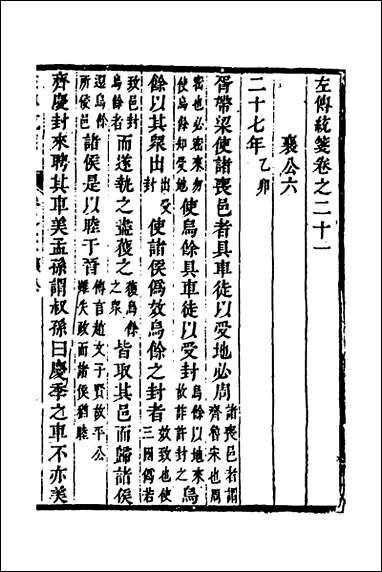 左傳統箋卷之二十一
襄公六
二十七年乙卯
胥帶梁使諸喪邑者具車徒以受地必周諸喪邑者謂齊魯宋也周
密也必密來勿使烏餘知受地使烏餘具車徒以受封烏餘以地來故詐許封之烏
餘以其眾出出受封使諸侯僞效烏餘之封者效致也使三國僞若
致邑封烏餘者而遂執之盡獲之獲烏餘之眾皆取其邑而歸諸侯
還烏餘所侵邑諸侯是以睦于晉傳言趙文子賢故平公雖失政而諸侯猶睦
齊慶封來聘其車美孟孫謂叔孫曰慶季之車不亦美